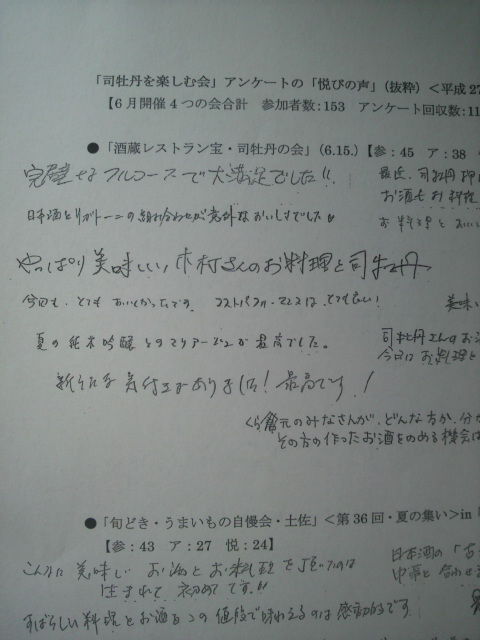 「司牡丹を楽しむ会」アンケートの「悦びの声」(抜粋)<平成27
【6月開催4つの会合計 参加者数:153 アンケート回収数:11
●「酒蔵レストラン宝・司牡丹の会」(6.15.)【参:45 ア:38
完璧なフルコースで大満足でした!!
最近、司牡丹
お酒もお料理
日本酒とリガトーニの組み合わせが意外なおいしさでした!!
お料理と
やっぱり美味しい木村さんのお料理と司牡丹
今回も、とてもおいしかったです。コストパフォーマンスは、とても良い!
美味い
夏の純米吟醸とのマリアージュが最高でした。
司牡丹さんのお酒
今回はお料理と
新たな気付きがありました!最高です!
くら元のみなさんが、どんな方か、分か
その方の作ったお酒をのめる機会は
●「旬どき・うまいもの自慢会・土佐」<第36回・夏の集い>in
【参:43 ア:27 悦:24】
こんなに美味しいお酒とお料理を頂いたのは
生まれて初めてです!!
日本酒の「古
中華と合わせ
すばらしい料理とお酒をこの値段で味わえるのは感動的です